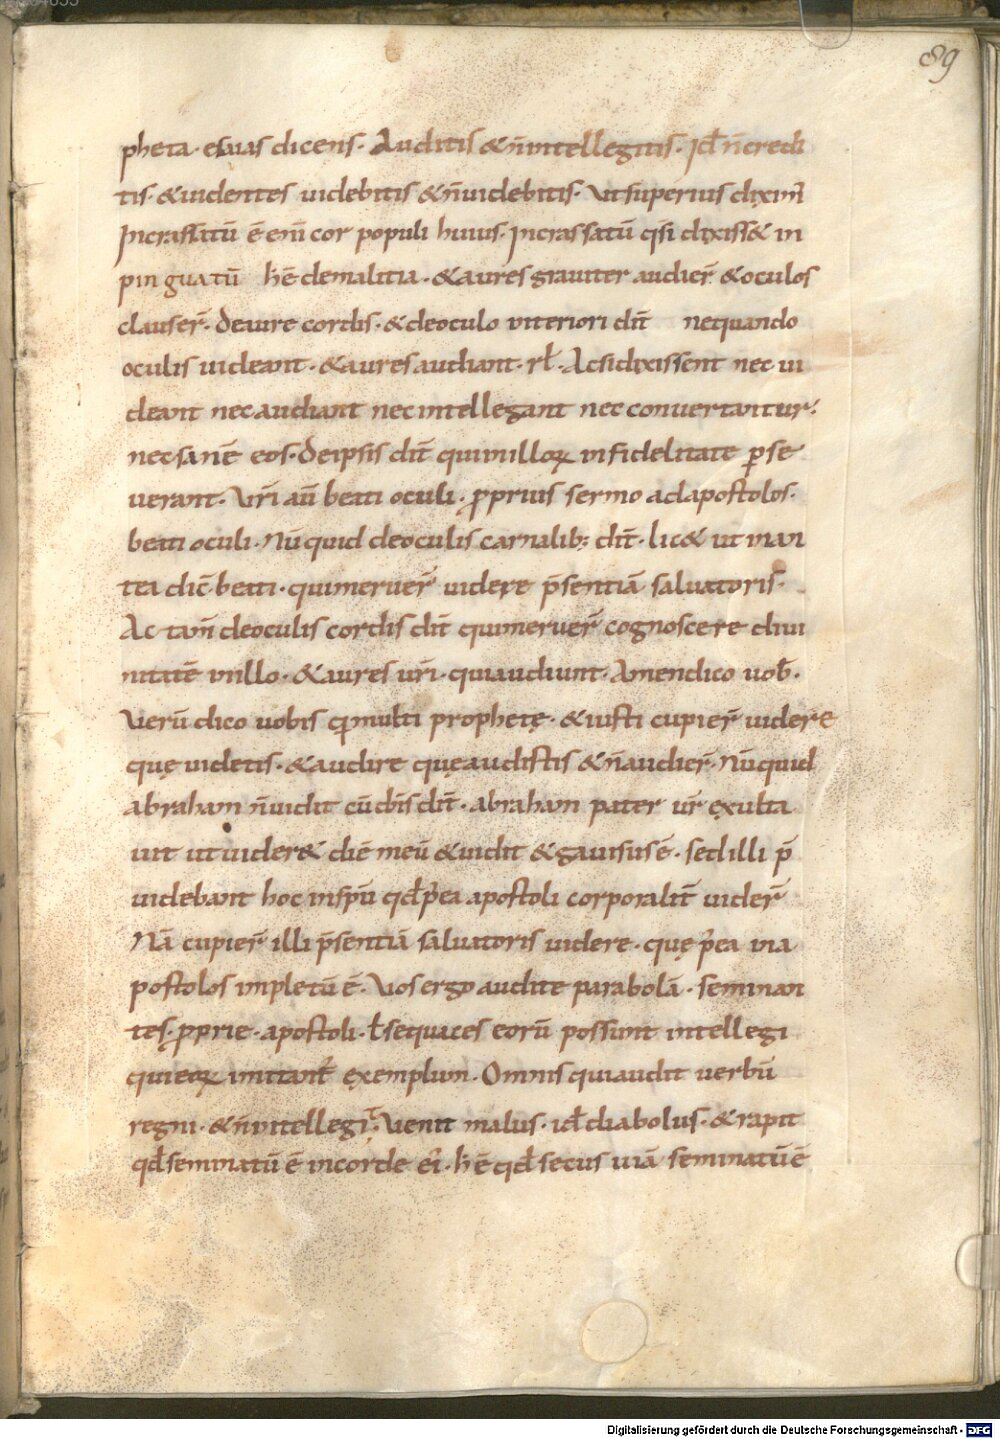 89
pheta· esaias dicens· Auditis &n̄intellegitis· Id̄ n̄credi
tis· &uidentes uidebitis &n̄uidebitis· Utsuperius dixim̄
Incrassatū ē eni̅ cor populi huius· Incrassatū q̄si dixiss& in
pinguatū h̄ē demalitia· &aures grauiter audier̄ &oculos
clauser̄· Deaure cordis· &deoculo interiori dīt nequando
oculis uideant· &aures audiant· rl̄· Acsidixissent nec ui
deant nec audiant nec intellegant nec conuertantur·
necsanē eos· Deipsis dīt quiinilloꝝ infidelitate ꝑse
uerant· Ur̄i au̅ beati oculi· ꝓprius sermo adapostolos·
beati oculi· Nūquid deoculis carnalib; dīt· lic& ut inan
tea dic̄ beati· quimeruer̄ uidere p̄sentiā saluatoris·
Ac tam̄ deoculis cordis dīt quimeruer̄ cognoscere diui
nitatē inillo· &aures ur̄i· quiaudiunt· Amendico uob̄·
Verū dico uobis q̄ multi prophetę· &iusti cupier̄ uidere
quę uidetis· &audire quęaudistis &n̄audier̄· Nūquid
abraham n̄uidit cūdn̄s dīt· abraham pater ur̄ exulta
uit ut uider& diē meū &uidit &gauisusē· sed illi p̄
uidebant hoc insp̄ū qd̄ p̄ea apostoli corporalit̄ uider̄
Nā cupier̄ illi p̄sentiā saluatoris uidere· quę p̄ea ina
postolos impletū ē· Uos ergo audite parabolā· seminan
tes· ꝓprie· apostoli· ł sequaces eorū possunt intellegi
quieoꝝ imitant̄ exemplum· Omnis quiaudit uerbū
regni· &n̄intellegit· Uenit malus· id̄ diabolus· &rapit
qd̄ seminatū ē incorde ei̅· h̄ ē qd̄ secus uiā seminatū ē
Digitalisierung gefördert durch die Deutsche Forschungsgemeinschaft - DFG